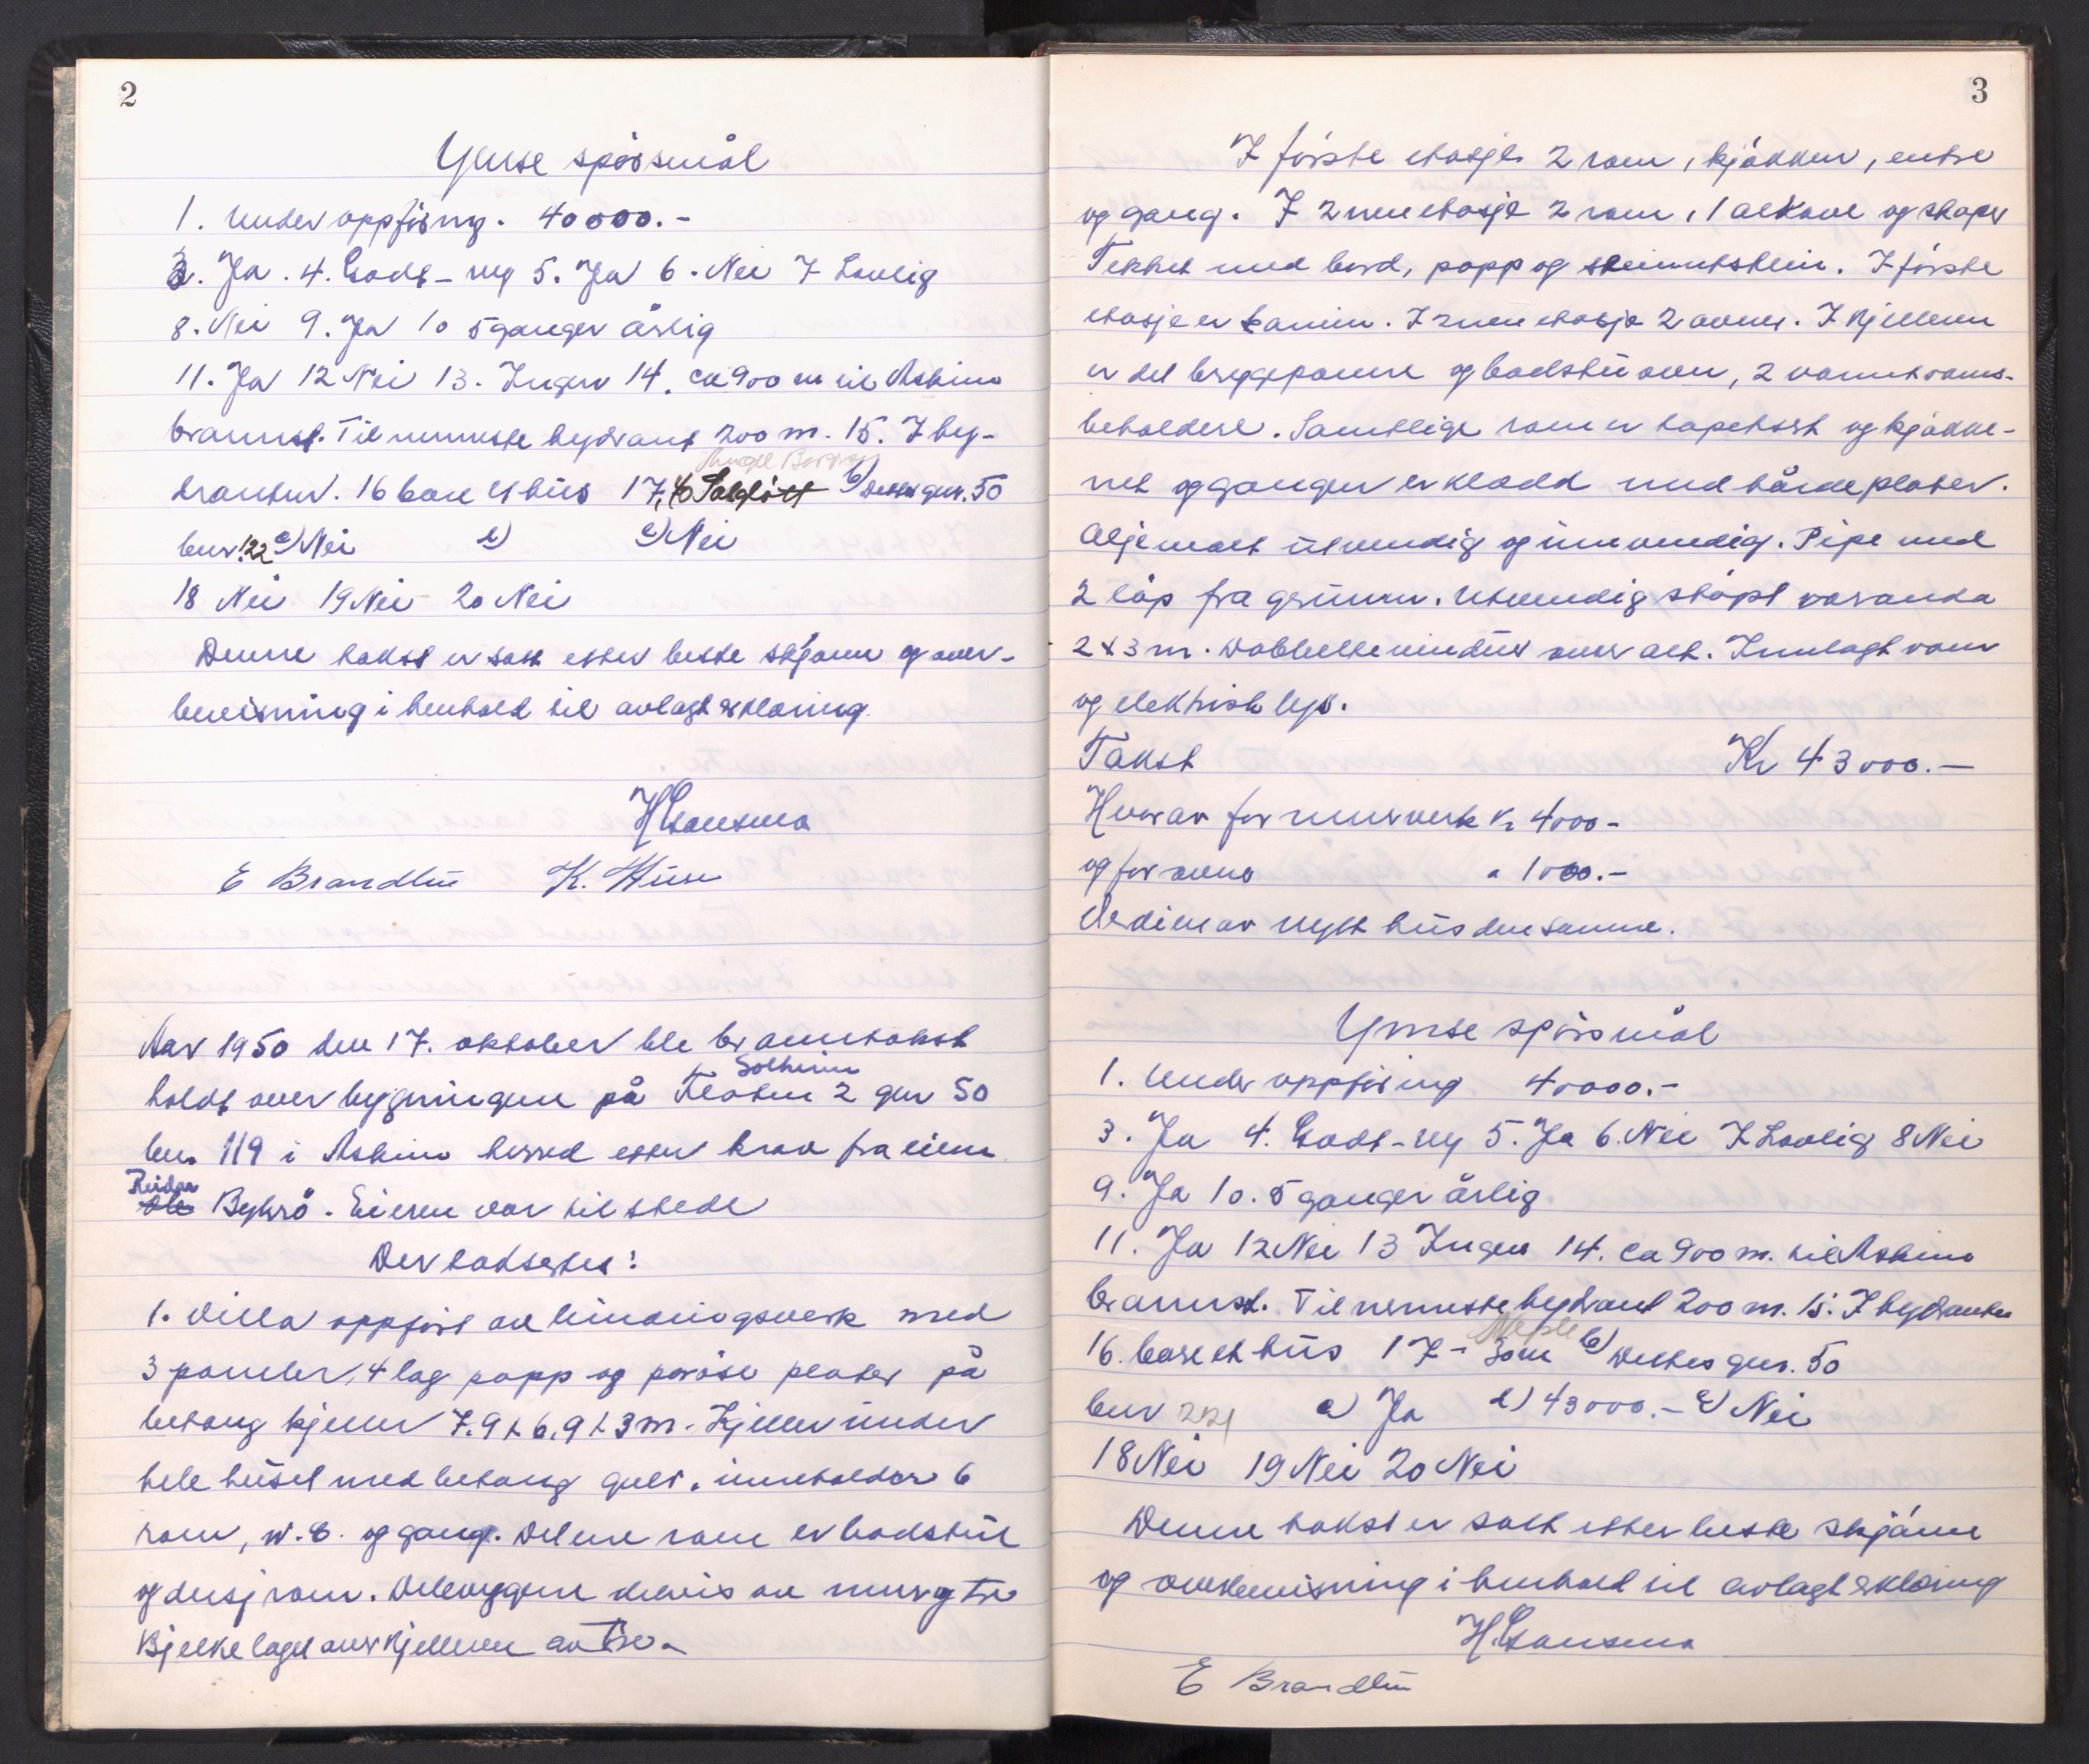 2
Ymse spørsmål
1. Under oppføring. 40000.-
3. Ja. 4. Godt - ny 5. Ja 6. Nei 7 Lovlig
8. Nei 9. Ja 10 5 ganger årlig
11. Ja 12 Nei 13. Ingen 14. ca 900 m til Askim
brannst. Til nærmeste hydrant 200 m. 15. I hy-
dranten. 16 bare et hus 17, 40 b) Dettes gnr. 50
bnr. 122 c) Nei d) e) Nei
18 Nei 19 Nei 20 Nei
Denne takst er satt etter beste skjønn og over-
bevisning i henhold til avlagt erklæring.
E Brandlin K. Huse
Aar 1950 den 17. oktober ble branntakst
Solheim
holdt over bygningen på Floten 2 gnr 50
bnr. 119 i Askim herred etter krav fra eieren
Reidar
Ole Byhrø. Eieren var tilstede
Der taksertes:
1. Villa oppført av bindingsverk med
3 paneler, 4 lag papp og porøse plater på
betong kjeller 7.9 x 6.9 x 3 m. Kjeller under
hele huset med betong gulv. inneholder 6
rom, W.C. og gang. Det ene rom er badstue
og dusjrom. Deleveggene delvis av mur og tre
Bjelkelaget over kjelleren av tre.
3
I første etasje 2 rom, kjøkken, entre
og gang. I 2nen etasje 2 rom, 1 alkove og skaper
Tekket med bord, papp og sementstein. I første
etasje er kamin. I 2nen etasje 2 ovner. I kjelleren
er det bryggpanne og badstuovn, 2 varmtvanns-
beholdere. Samtlige rom er tapetsert og kjøkke-
net og gangen er kledd med hårdeplater.
Oljemalt utvendig og innvendig. Pipe med
2 løp fra grunnen. Utvendig støpt veranda
2 x 3 m. Dobbelte vinduer over alt. Innlagt vann
og elektrisk lys.
Takst Kr 43000.-
Hvorav for murverk kr 4000-
og for ovner " 1000.-
Verdien av nytt hus den samme.
Ymse spørsmål
1. Under oppføring 40000.-
3. Ja 4. Godt - ny 5. Ja 6. Nei 7. Lovlig 8 Nei
9. Ja 10. 5 ganger årlig
11. Ja 12 Nei 13 Ingen 14. ca 900 m. til Askim
brannst. Til nærmeste hydrant 200 m. 15. I hydranten
16. bare et hus 17 - 30 m b) Dettes gnr. 50
bnr 221 c) Ja d) 43000.- e) Nei
18 Nei 19 Nei 20 Nei
Denne takst er satt etter beste skjønn
og overbevisning i henhold til avlagt erklæring
E Brandlin